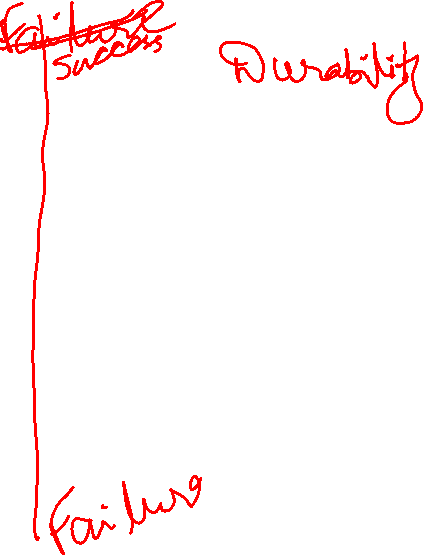 Failure
Success
Durability
Failure